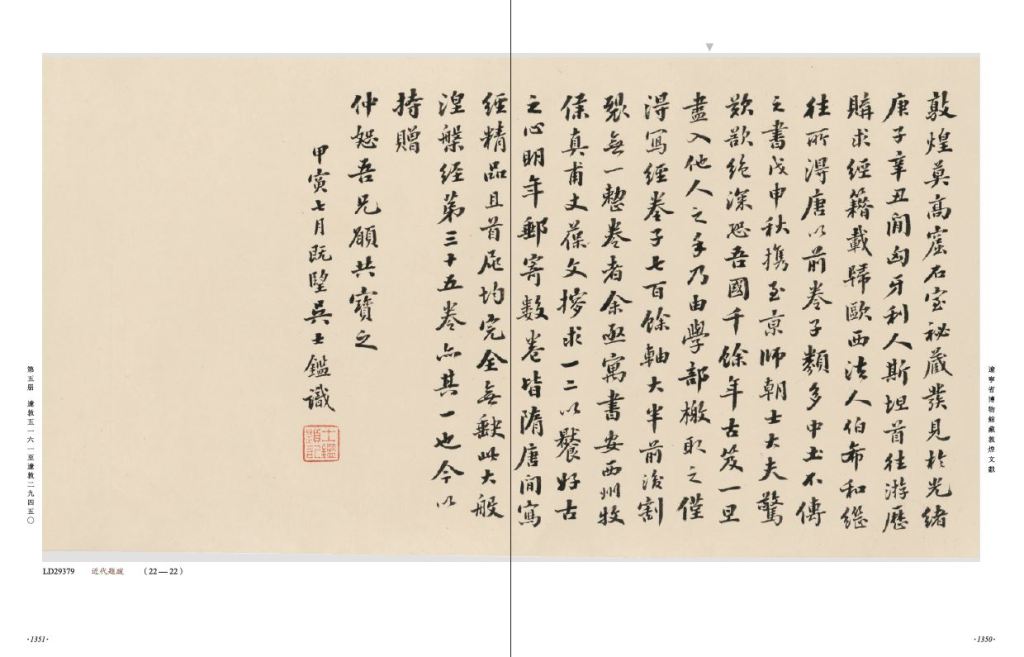 敦煌莫高窟石室秘藏發見於光緒
庚子辛丑間匈牙利人斯坦首往游歷
購求經籍載歸歐西法人伯希和繼
往所得唐以前卷子類多中土不傳
之書戊申秋攜至京師朝士大夫驚
歎欲絕深恐吾國千餘年古笈一旦
盡入他人之手乃由學部檄取之僅
得寫經卷子七百餘軸大半前後割
裂無一整卷者余亟寓書安西州牧
侯真甫丈葆文搜求一二以饜好古
之心明年郵寄數卷皆隋唐間寫
經精品且首尾均完全無缺此大般
湼槃經第三十五卷亦其一也今以
持贈
仲恕吾兄願共寶之
甲寅七月既望吳士鑑識
遼寧省博物館藏敦煌文獻
第五册 遼敦五一六一至遼敦二九四五〇
LD29379 近代題跋 (22—22)
·1351·
·1350·